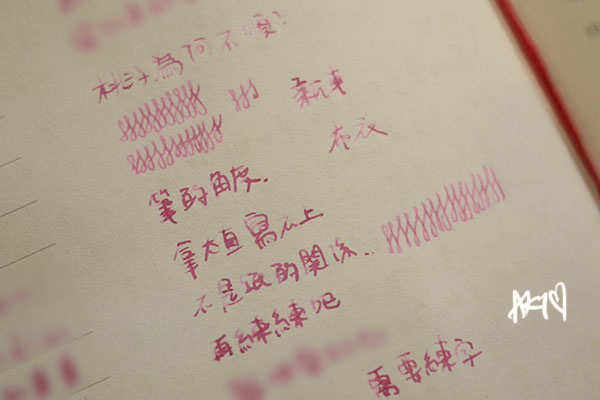 為何不順?
布衣
筆的角度.
拿太直寫不上
不是紙的關係..
再練練吧
需要練字